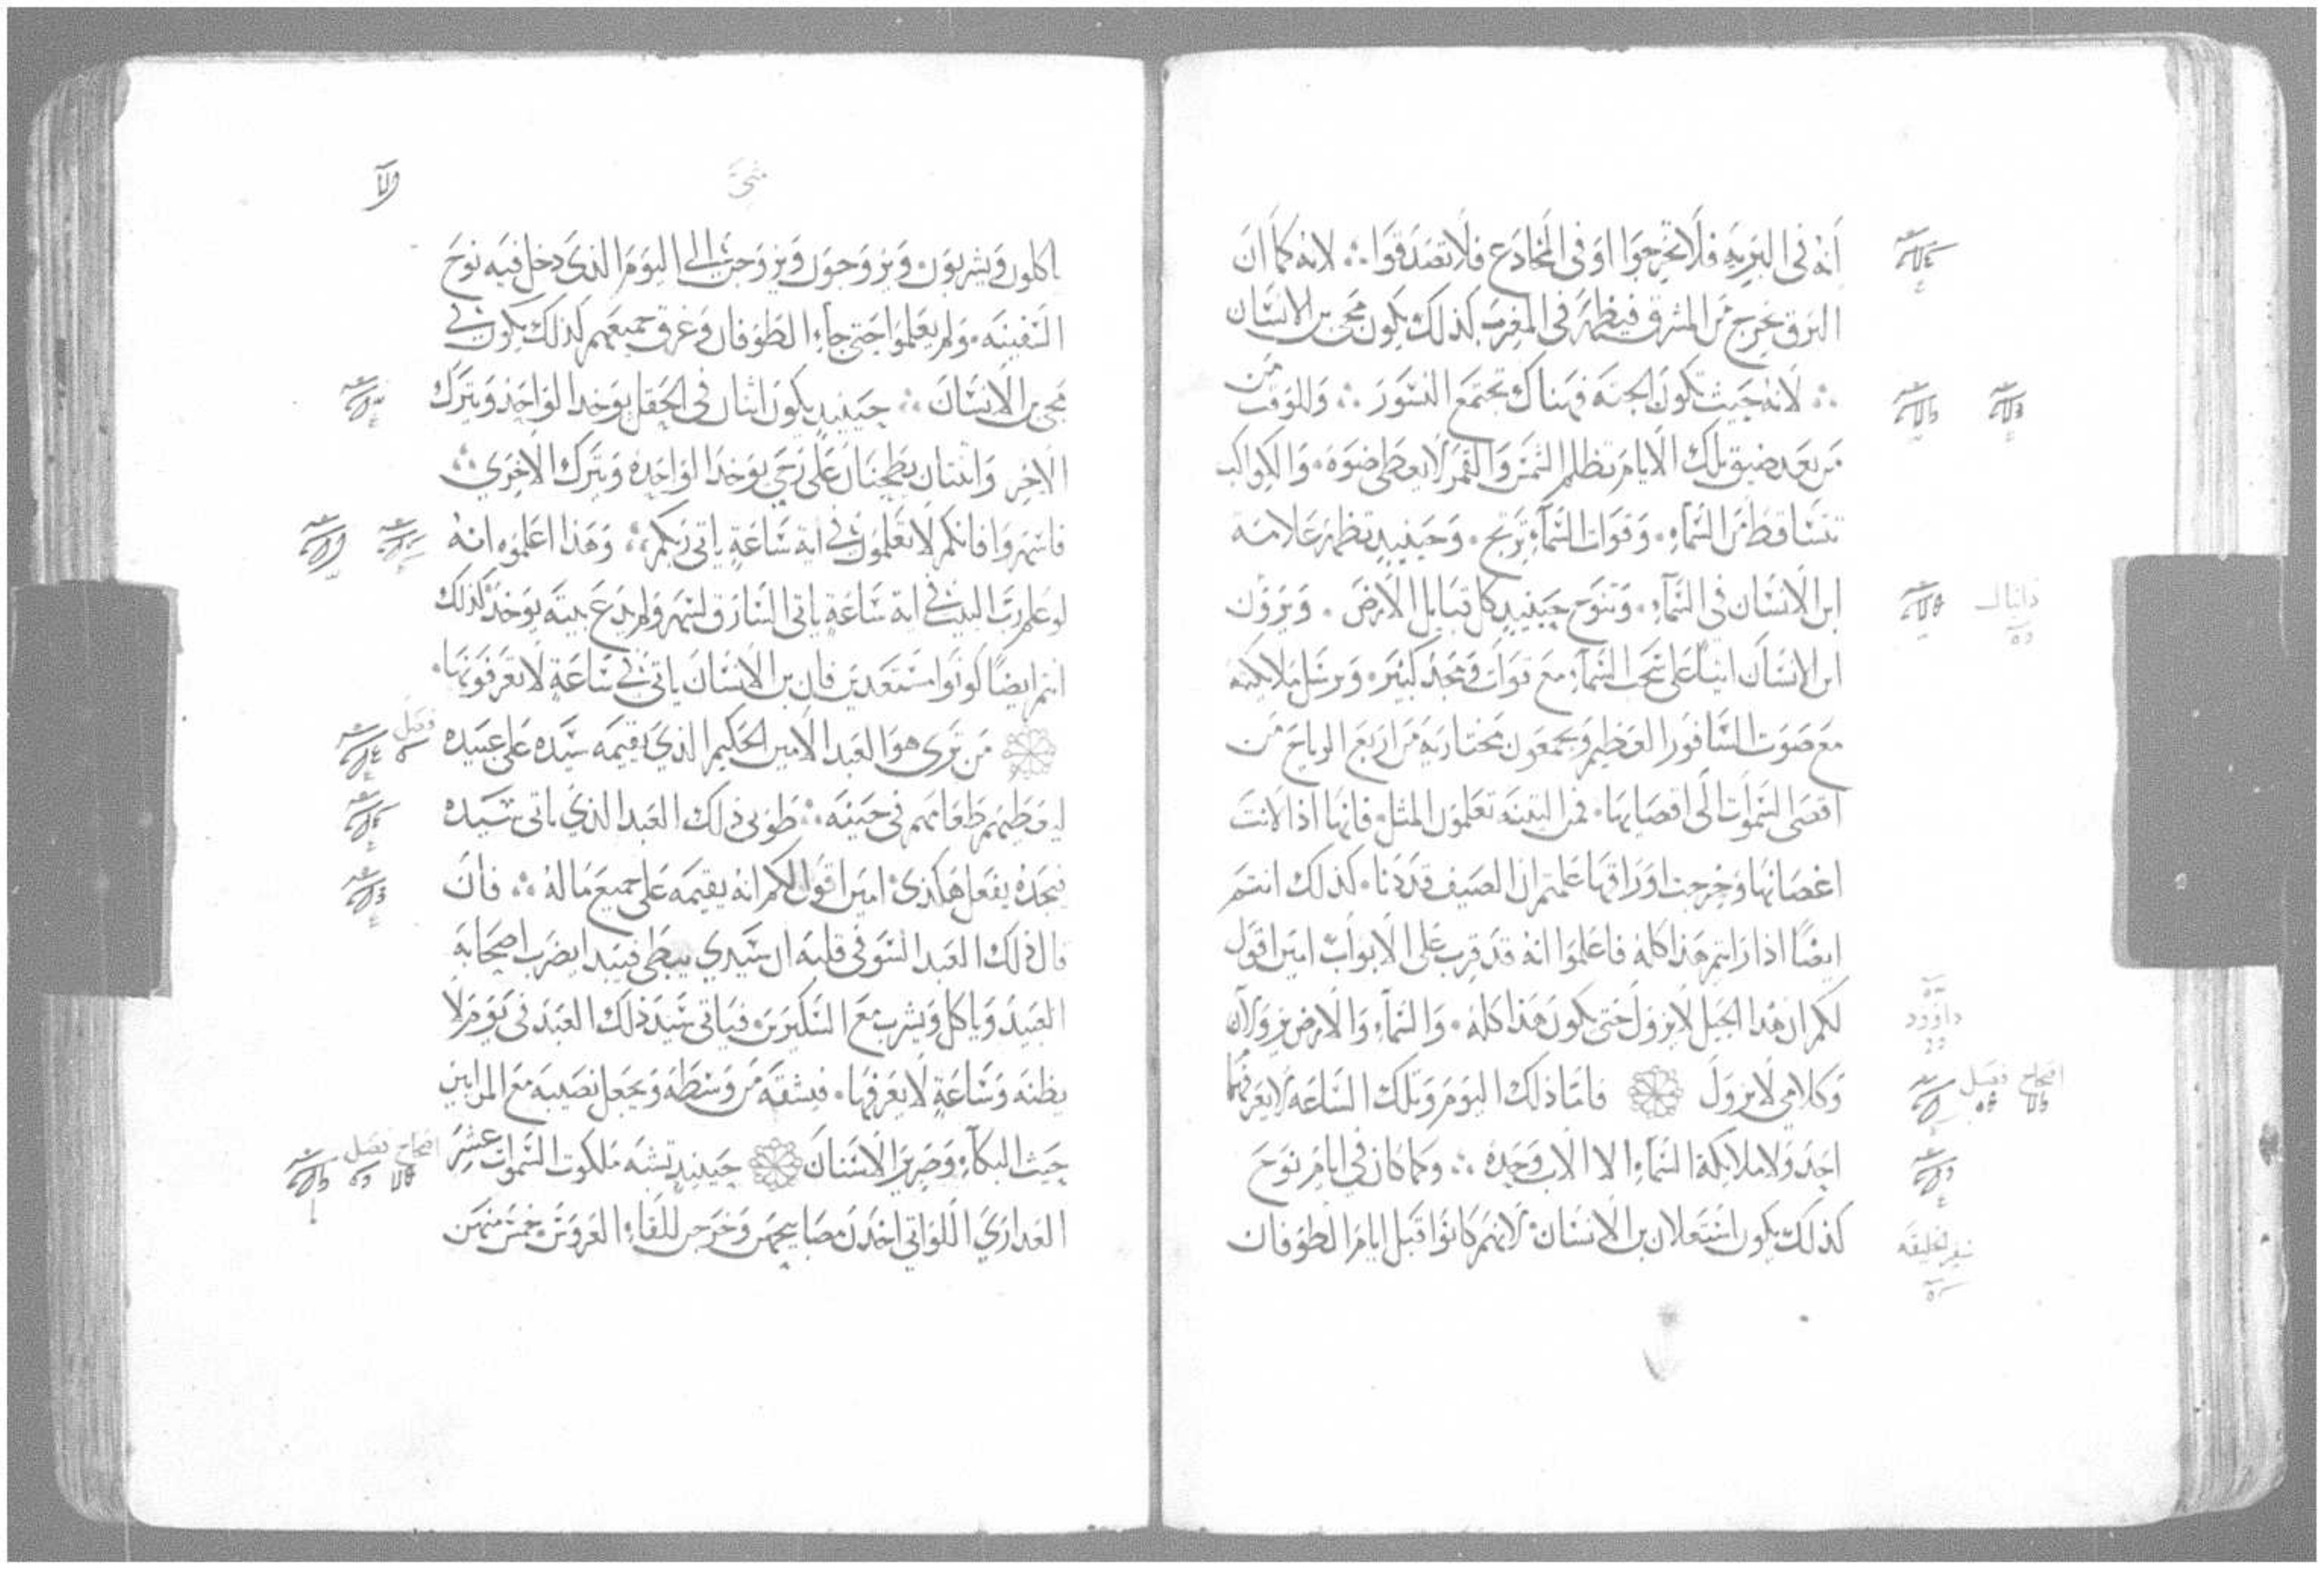 انه في البريه فلا تخرجوا او في المخادع فلا تصدقوا ∴ لانه كما ان
البرق يخرج من المشرق فيظهر في المغرب كذلك يكون مجي بن الانسان
∴ لانه حيث تكون الجثه فهناك تجتمع النسور ∴ وللوقت من
من بعد ضيق تلك الايام تظلم الشمس والقمر لا يعطي ضوه . والكواكب
تتساقط من السماء . وقوات السماء ترتج . وحينيد تظهر علامة
ابن الانسان في السماء . وتنوح حينيد كل قبايل الارض . ويرون
دانيال
ابن الانسان اتيا على سحب السماء مع قوات ومجد كثير . ويرسل ملايكته
مع صوت السافور العظيم ويجمعون مختاريه من اربع الرياح من
اقصى السموات الى اقصايها . فمن التينه تعلمون المثل . فانها اذا لانت
اغصانها وخرجت اوراقها علمتم ان الصيف قد دنا . كذلك انتم
ايضا اذا رايتم هذا كله فاعلموا انه قد قرب على الابواب امين اقول
لكم ان هذا الجيل لا يزول حتى يكون هذا كله . والسماء والارض يزولان
داوود
وكلامي لا يزول فاما ذلك اليوم وتلك الساعه لا يعرفهما
اصحاح فصل
احد ولا ملايكة السماء الا الاب وحده ∴ وكما كان في ايام نوح
كذلك يكون استعلان بن الانسان لانهم كانوا قبل ايام الطوفان
سفر الخليقه
متى
ياكلون ويشربون . ويتزوجون ويزوجن الى اليوم الذي دخل فيه نوح
السفينه . ولم يعلموا حتى جاء الطوفان وغرق جميعهم كذلك يكون في
مجي بن الانسان ∴ حينيد يكون اثنان في الحقل يوخد الواحد ويترك
الاخر واثنتان يطحنان على رحى يوخد الواحده ويترك الاخرى ∴
فاسهروا فانكم لا تعلمون في اية ساعة ياتي ربكم ∴ وهذا اعلموه انه
لو علم رب البيت في اية ساعة ياتي السارق لسهر ولم يدع بيته يوخد كذلك
انتم ايضا كونوا مستعدين فان بن الانسان ياتي في ساعة لا تعرفونها .
من ترى هو العبد الامين الحكيم الذي يقيمه سيده على عبيده
فصل
ليعطيهم طعامهم في حينه ∴ طوبى ذلك العبد الذي ياتي سيده
فيجده يفعل هكذى امين اقول لكم انه يقيمه على جميع ماله ∴ فان
قال ذلك العبد السو في قلبه ان سيدي يبطي فيبدا يضرب اصحابه
العبيد وياكل ويشرب مع السكيرين فياتي سيد ذلك العبد في يوم لا
يظنه وساعة لا يعرفها . فيشقه من وسطه ويجعل نصيبه مع المرايين
حيث البكاء وصرير الاسنان حينيد تشبه ملكوت السموات عشر
اصحاح فصل
العداري اللواتي اخذن مصابيحهن وخرجن للقاء العروس خمس منهن